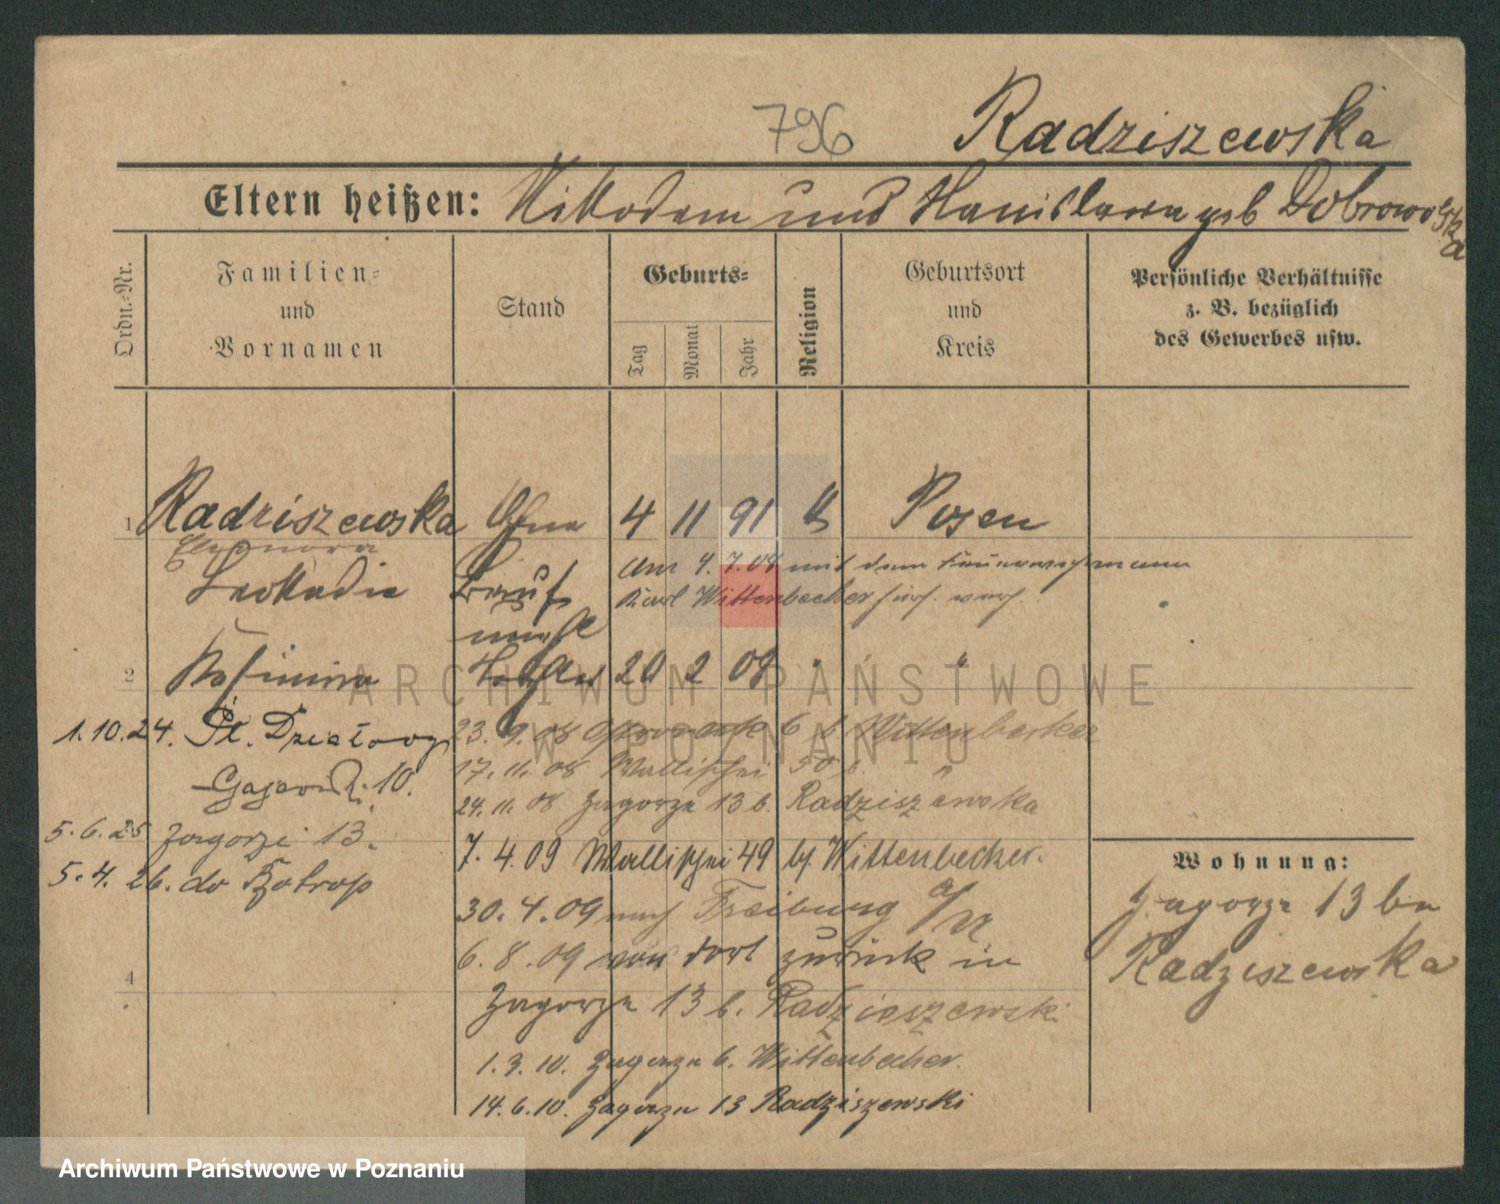 796
Radziszewska
Eltern heißen: Nikodem und Stanislawa geb Dobrowolska
Ordn.-Nr.
Familien-
und
Vornamen
Stand
Geburts-
Tag
Monat
Jahr
Religion
Geburtsort
und
Kreis
Persönliche Verhältnisse
z. B. bezüglich
des Gewerbes usw.
1 Radziszewska Ohne 4 11 91 k Posen
Eleonora
Leokadia Beruf
am 4. 7. 08 mit dem
Karl Wittenbecher
2 Kasimira Tochter 20 2 08 " "
1.10.24. Pl. Działowy
10.
5.6.25 Zagorze 13.
5.4.26. do Botrop
23. 9. 08 6 b Wittenbecher
17. 11. 08 Wallischei 50 b. "
24. 11. 08 Zagorze 13 b. Radziszewska
7. 4. 09 Wallischei 49 b/ Wittenbecher.
30. 4. 09 nach Freiburg
6. 8. 09 von dort zurück in
4
Zagorze 13 b. Radziszewski
1. 3. 10. Zagorze b. Wittenbecher.
14. 6. 10. Zagorze 13 Radziszewski
Wohnung:
Zagorze 13 bei
Radziszewska
ARCHIWUM PAŃSTWOWE
W POZNANIU
Archiwum Państwowe w Poznaniu